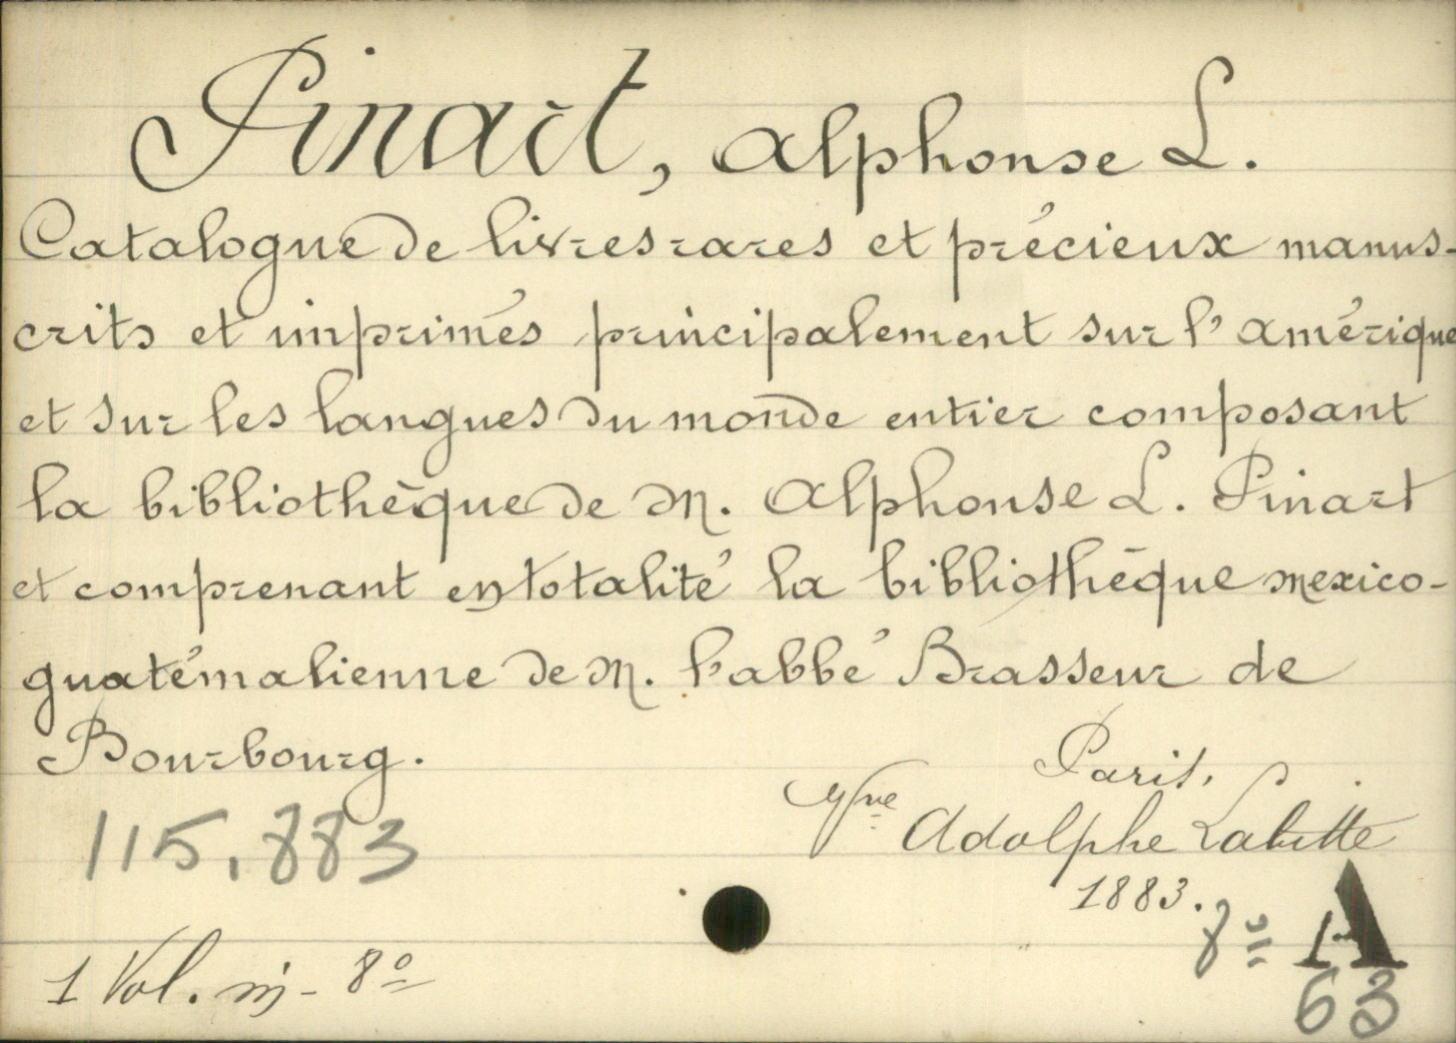 Pinart, Alphonse L.
Catalogue de livres rares et précieux manus-
crits et imprimés principalement sur l'Amérique
et sur les langues du monde entier composant
la bibliothèque de M. Alphonse L. Pinart
et comprenant en totalité la bibliothèque mexico-
guatémalienne de M. l'abbé Brasseur de
Bourbourg.
Paris,
Vve Adolphe Labitte
1883.
115.883
1 Vol. in-8º
A
63